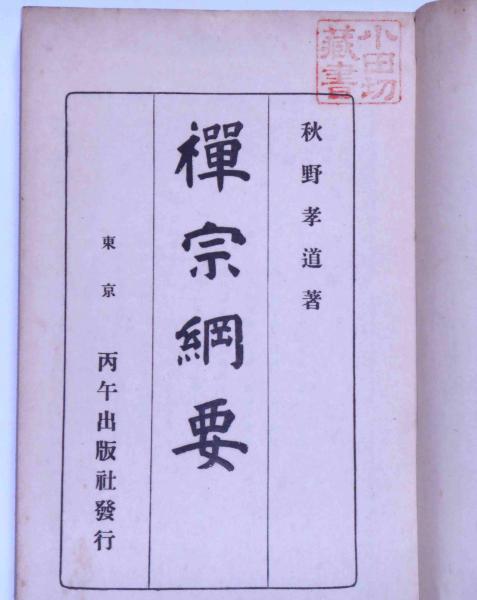 小田切
藏書
秋野孝道著
禪宗綱要
東京 丙午出版社發行